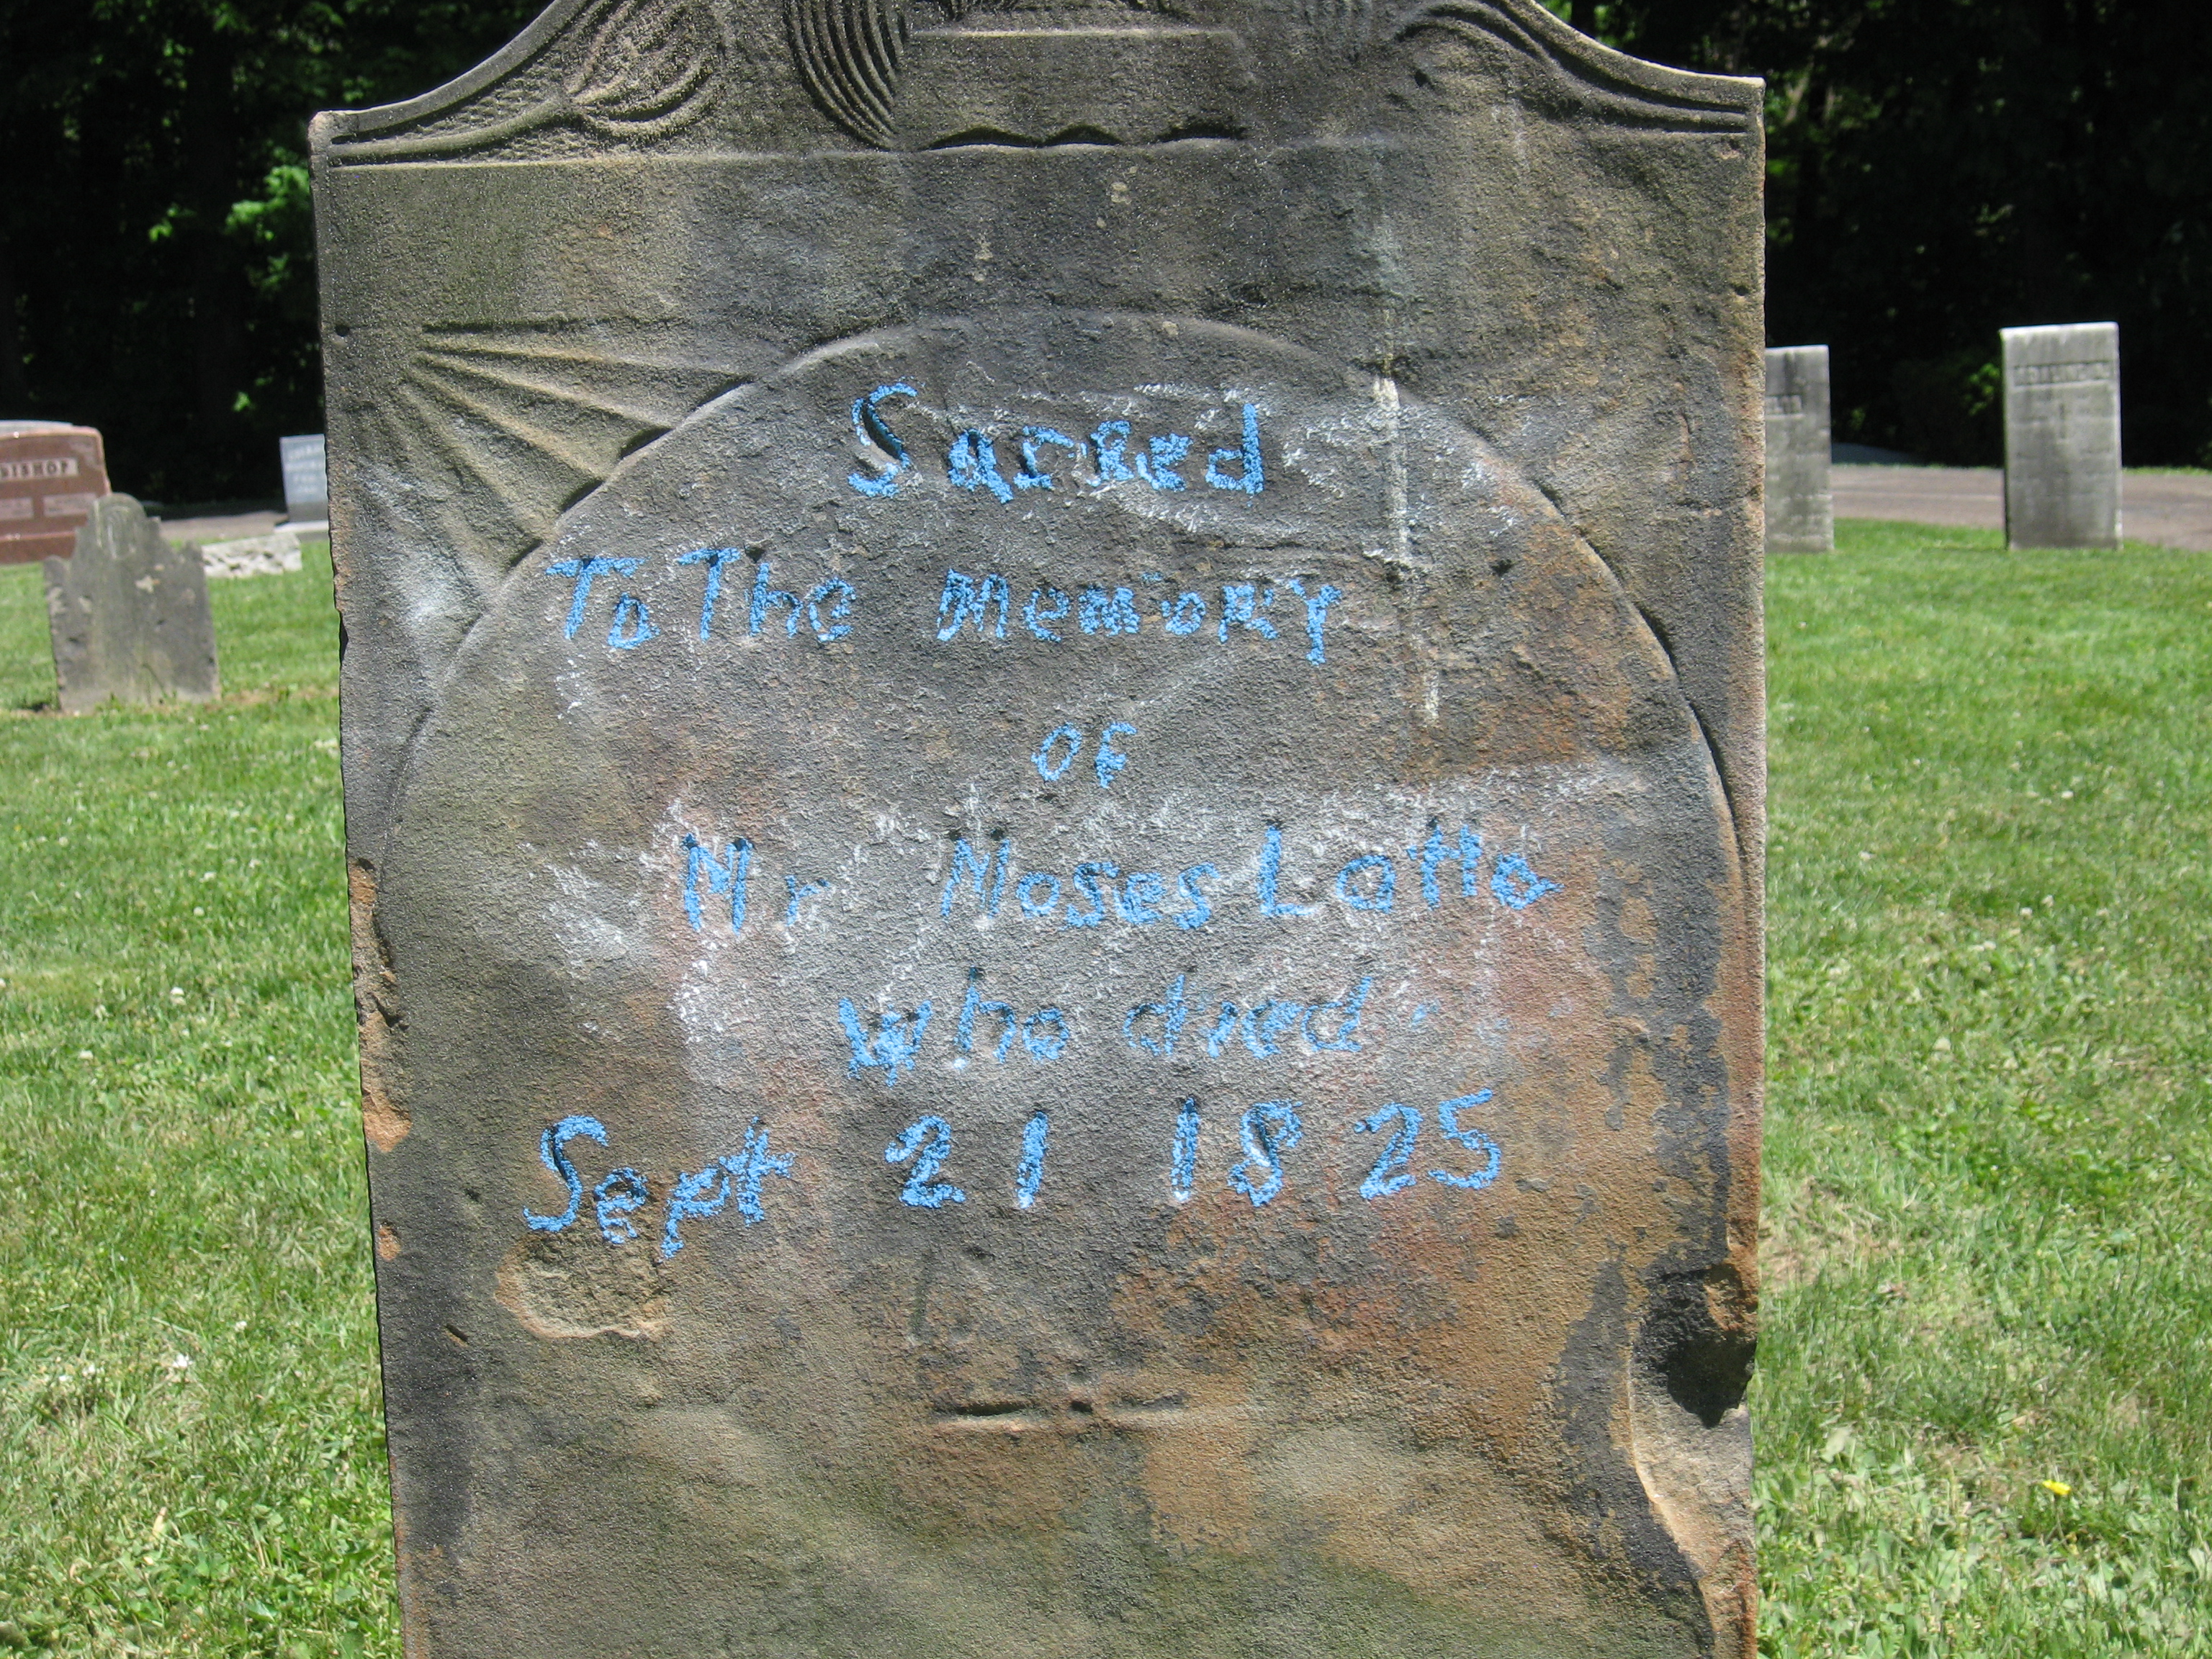 Sacred
To The Memory
OF
Mr Moses Latta
who died
Sept 21 1825
BISHOP